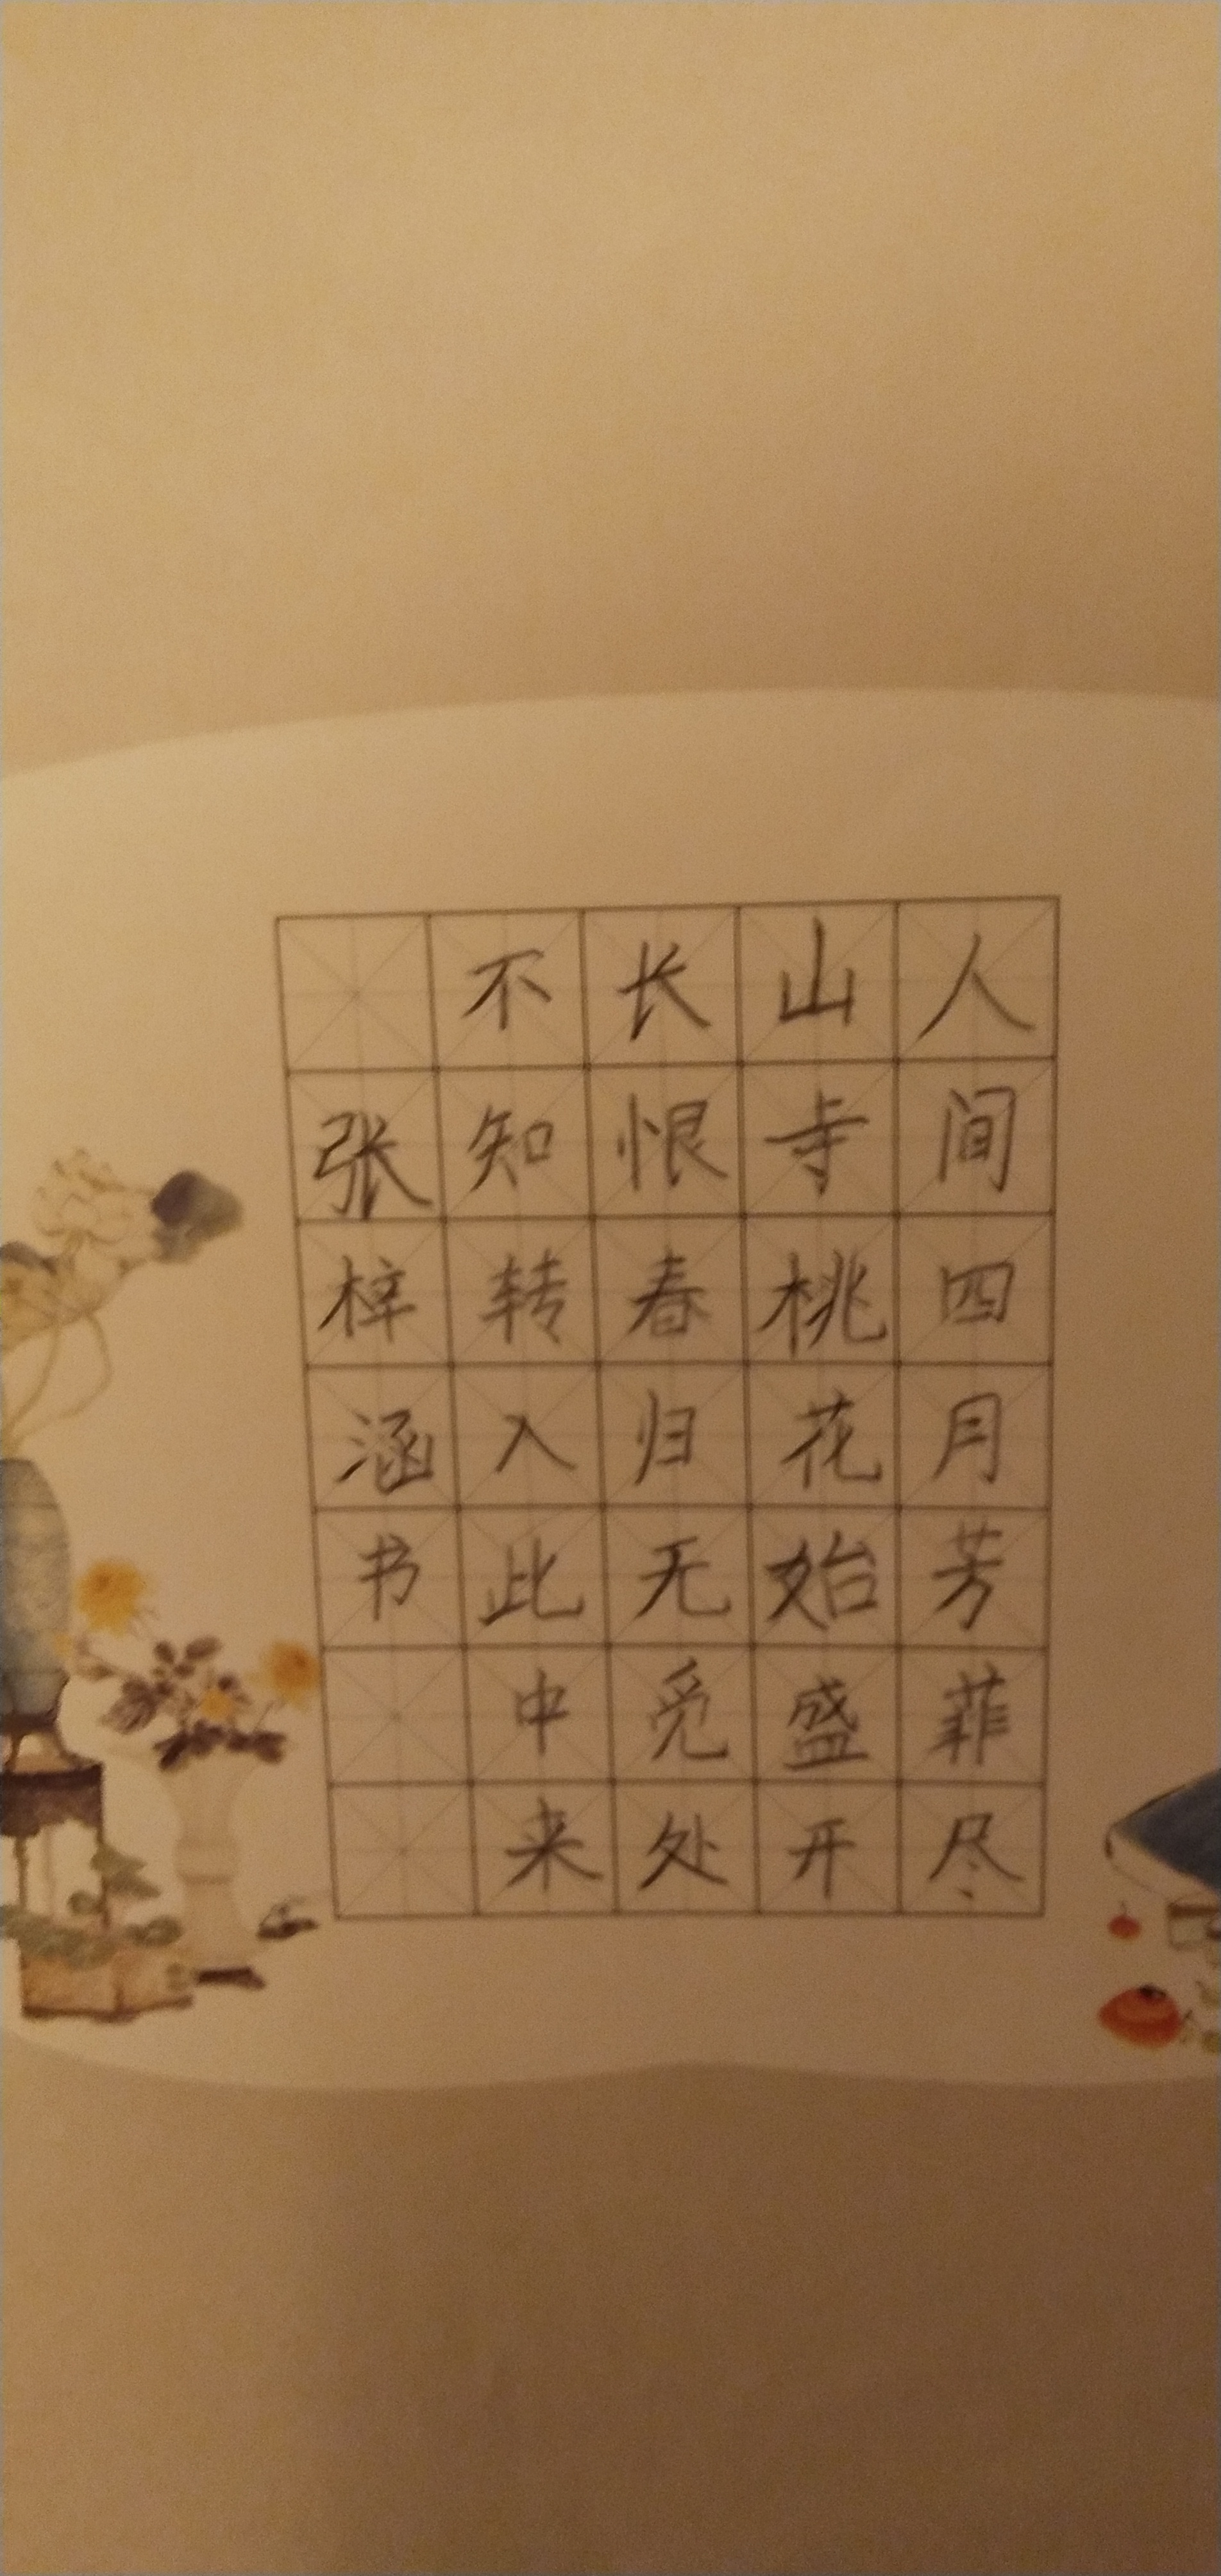 人间四月芳菲尽
山寺桃花始盛开
长恨春归无觅处
不知转入此中来
张梓涵书